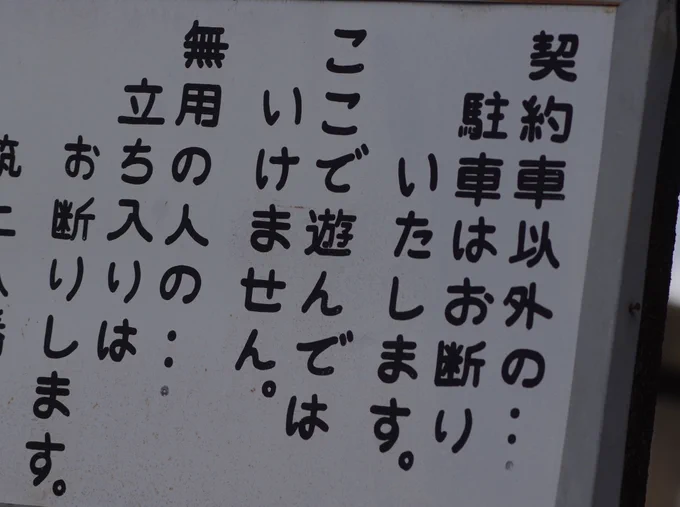 契約車以外の…
駐車はお断り
いたします。
ここで遊んでは
いけません。
無用の人の…
立ち入りは
お断りします。